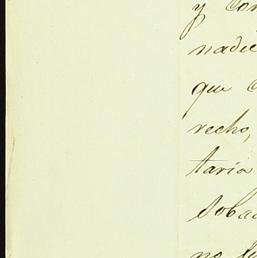 y con
nadie
que c
recho,
taria
Soba
no